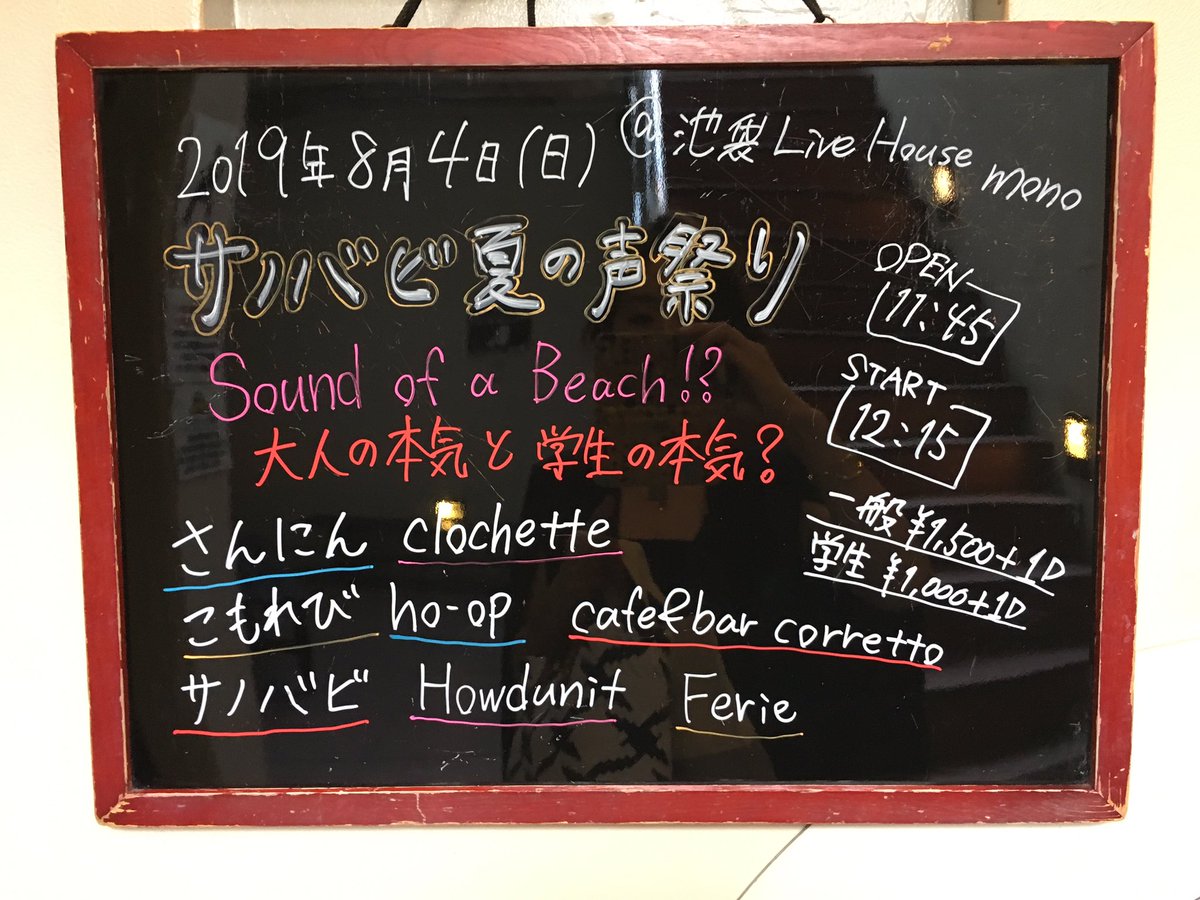 2019年8月4日(日) @池製 Live House mono
サノバビ夏の声祭り
OPEN
11:45
Sound of a Beach!?
START
12:15
大人の本気と学生の本気?
一般 ¥1,500+1D
学生 ¥1,000+1D
さんにん clochette
こもれび ho-op cafe&bar corretto
サノバビ Howdunit Ferie